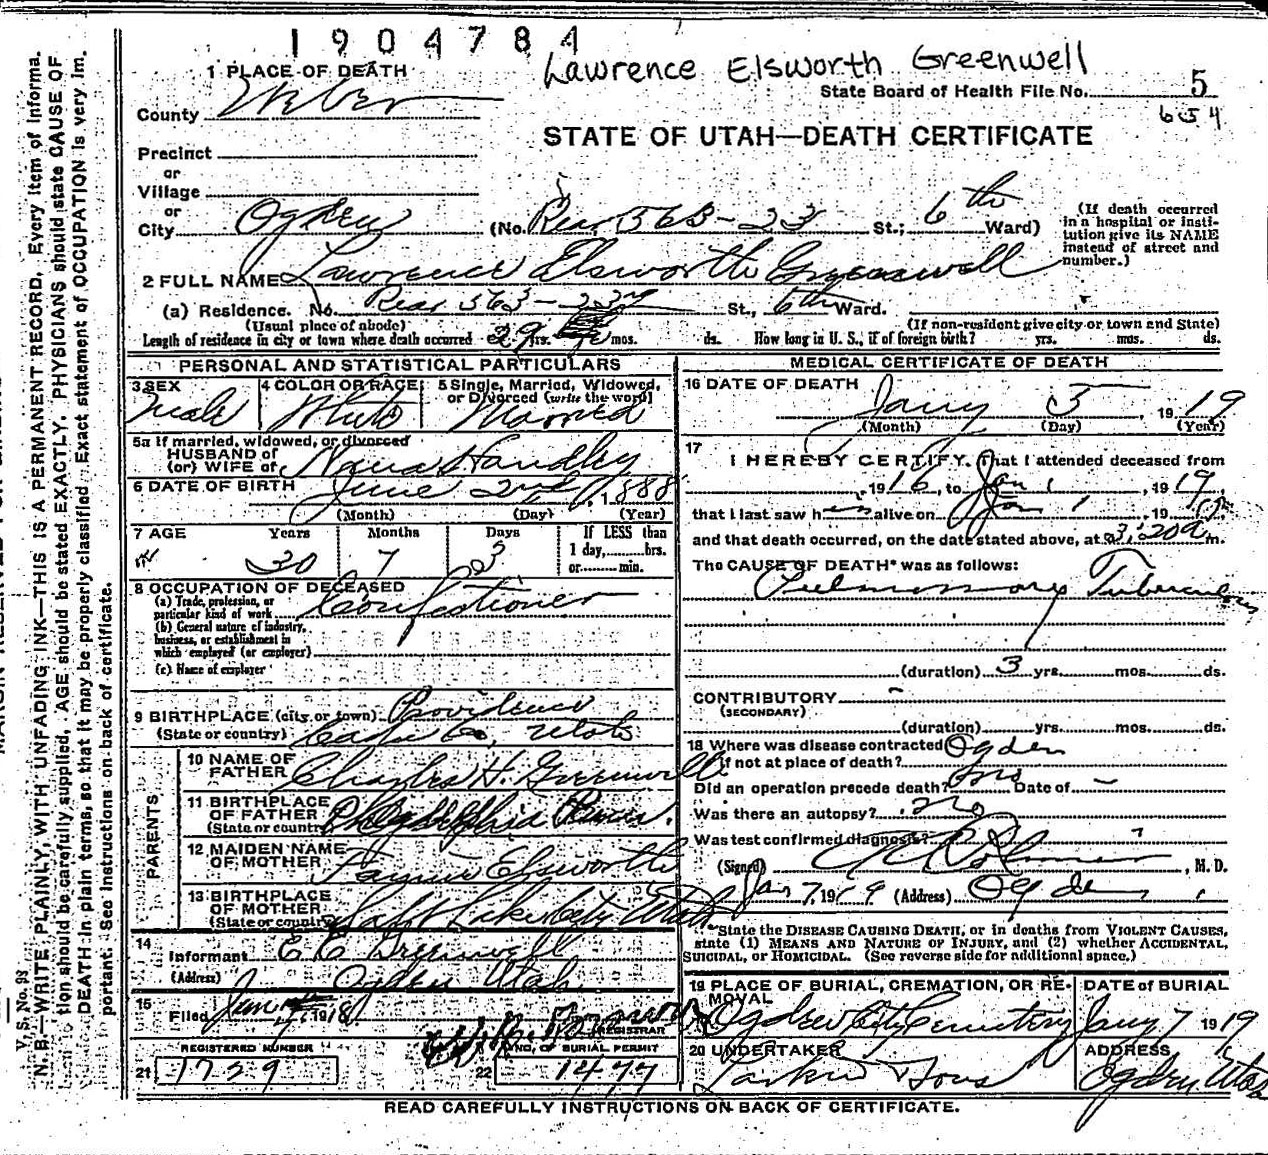 1904784
Lawrence Elsworth Greenwell
1 PLACE OF DEATH
State Board of Health File No. 5
654
County Weber
STATE OF UTAH—DEATH CERTIFICATE
Precinct
or
Village
or
City Ogden (No. Rear 563-23 St.; 6th Ward)
(If death occurred in a hospital or institution give its NAME instead of street and number.)
2 FULL NAME Lawrence Elsworth Greenwell
(a) Residence. No. Rear 563-23rd St., 6th Ward.
(Usual place of abode) (If non-resident give city or town and State)
Length of residence in city or town where death occurred 29 yrs. mos. ds. How long in U. S., if of foreign birth? yrs. mos. ds.
PERSONAL AND STATISTICAL PARTICULARS
3 SEX 4 COLOR OR RACE 5 Single, Married, Widowed, or Divorced (write the word)
Male White Married
5a If married, widowed, or divorced
HUSBAND of
(or) WIFE of Nana Handley
6 DATE OF BIRTH June 2nd, 1888
(Month) (Day) (Year)
7 AGE Years Months Days If LESS than
1 day, hrs.
or min.
30 7 3
8 OCCUPATION OF DECEASED
(a) Trade, profession, or
particular kind of work Confectioner
(b) General nature of industry,
business, or establishment in
which employed (or employer)
(c) Name of employer
9 BIRTHPLACE (city or town) Providence
(State or country) Cache Co, Utah
PARENTS
10 NAME OF
FATHER Charles H. Greenwell
11 BIRTHPLACE
OF FATHER
(State or country) Philadelphia Penn.
12 MAIDEN NAME
OF MOTHER Fannie Elsworth
13 BIRTHPLACE
OF MOTHER
(State or country) Salt Lake City Utah
14
Informant E E Greenwell
(Address) Ogden Utah
15
Filed Jan 1918
REGISTRAR
REGISTERED NUMBER
21 1729
NO. OF BURIAL PERMIT
22 1477
MEDICAL CERTIFICATE OF DEATH
16 DATE OF DEATH
Jany 5, 1919
(Month) (Day) (Year)
17
I HEREBY CERTIFY, That I attended deceased from
1916, to Jan 1, 1919,
that I last saw him alive on Jan 1, 19
and that death occurred, on the date stated above, at 3:20 a m.
The CAUSE OF DEATH* was as follows:
Pulmonary Tuberculosis
(duration) 3 yrs. mos. ds.
CONTRIBUTORY -
(SECONDARY)
(duration) yrs. mos. ds.
18 Where was disease contracted Ogden
if not at place of death?
Did an operation precede death? no Date of -
Was there an autopsy? no
Was test confirmed diagnosis?
(Signed), M. D.
Jan 7, 1919 (Address) Ogden
*State the DISEASE CAUSING DEATH, or in deaths from VIOLENT CAUSES,
state (1) MEANS AND NATURE OF INJURY, and (2) whether ACCIDENTAL,
SUICIDAL, or HOMICIDAL. (See reverse side for additional space.)
19 PLACE OF BURIAL, CREMATION, OR REMOVAL
Ogden City Cemetery
DATE OF BURIAL
Jany 7 1919
20 UNDERTAKER
Larkin & Sons
ADDRESS
Ogden, Utah
READ CAREFULLY INSTRUCTIONS ON BACK OF CERTIFICATE.
V. S. No. 98
N. B.—WRITE PLAINLY, WITH UNFADING INK—THIS IS A PERMANENT RECORD. Every item of information
should be carefully supplied. AGE should be stated EXACTLY. PHYSICIANS should state CAUSE OF
DEATH in plain terms, so that it may be properly classified. Exact statement of OCCUPATION is very important.
See instructions on back of certificate.